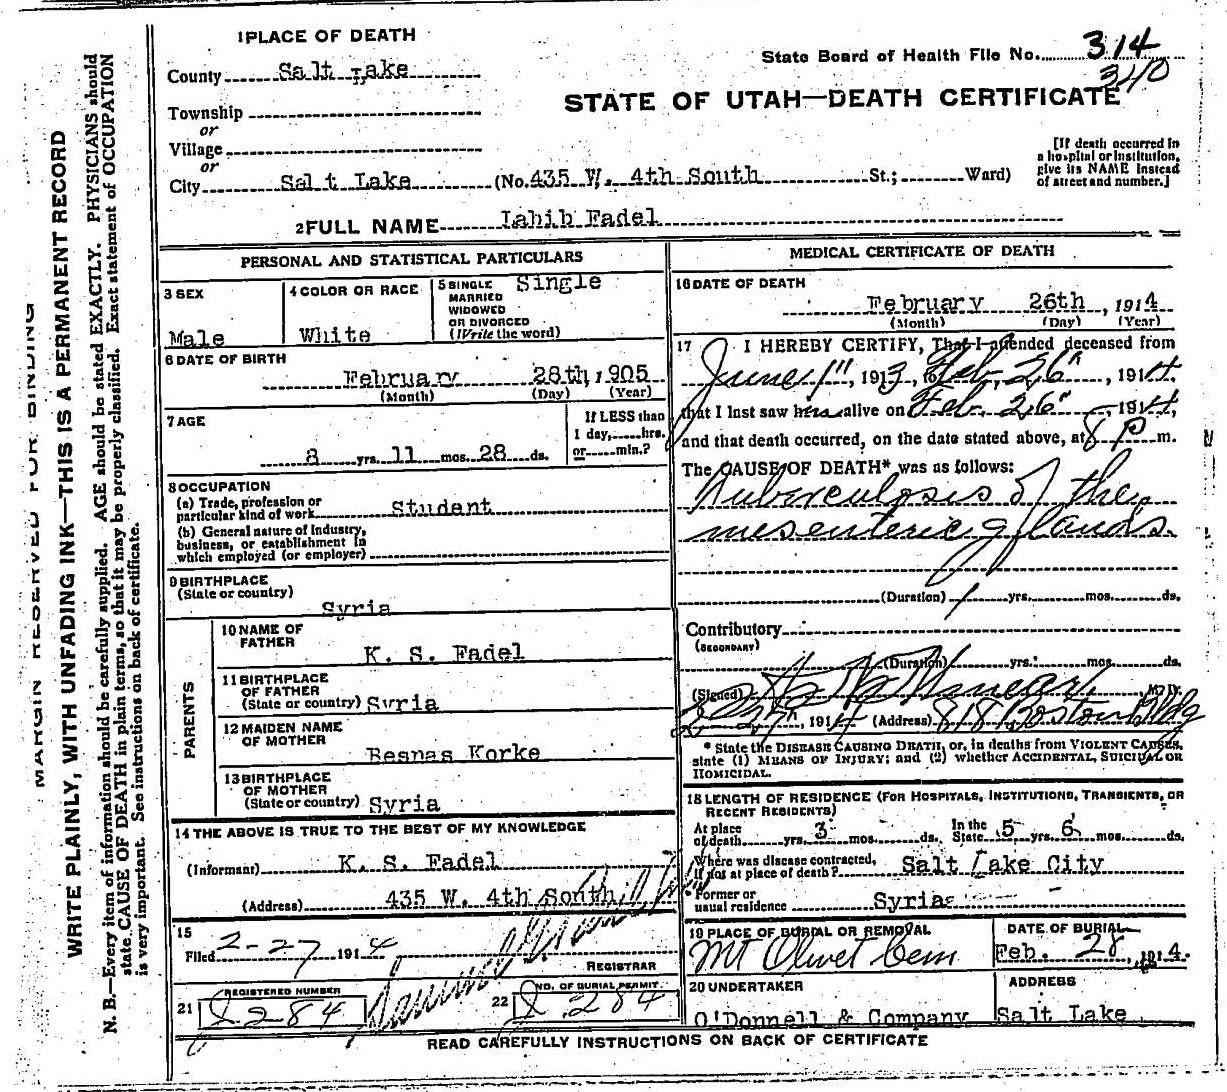 1 PLACE OF DEATH
County Salt Lake
Township
or
Village
or
City Salt Lake (No. 435 W. 4th South St.; Ward)
State Board of Health File No. 314
340
STATE OF UTAH—DEATH CERTIFICATE
[If death occurred in
a hospital or institution,
give its NAME instead
of street and number.]
2 FULL NAME Labib Fadel
PERSONAL AND STATISTICAL PARTICULARS
3 SEX
Male
4 COLOR OR RACE
White
5 SINGLE
MARRIED
WIDOWED
OR DIVORCED
(Write the word)
Single
6 DATE OF BIRTH
February 28th, 1905
(Month) (Day) (Year)
7 AGE
8 yrs. 11 mos. 28 ds.
If LESS than
1 day, hrs.
or min.?
8 OCCUPATION
(a) Trade, profession or
particular kind of work Student
(b) General nature of industry,
business, or establishment in
which employed (or employer)
9 BIRTHPLACE
(State or country)
Syria
PARENTS
10 NAME OF
FATHER
K. S. Fadel
11 BIRTHPLACE
OF FATHER
(State or country) Syria
12 MAIDEN NAME
OF MOTHER
Besnas Korke
13 BIRTHPLACE
OF MOTHER
(State or country) Syria
14 THE ABOVE IS TRUE TO THE BEST OF MY KNOWLEDGE
(Informant) K. S. Fadel
(Address) 435 W. 4th South
15
Filed 2-27 1914
REGISTRAR
21 REGISTERED NUMBER
284
22 NO. OF BURIAL PERMIT
284
MEDICAL CERTIFICATE OF DEATH
16 DATE OF DEATH
February 26th, 1914
(Month) (Day) (Year)
17 I HEREBY CERTIFY, That I attended deceased from
June 1", 1913, to Feb. 26", 1914.
that I last saw him alive on Feb. 26", 1914,
and that death occurred, on the date stated above, at 8 P m.
The CAUSE OF DEATH* was as follows:
Tuberculosis of the
mesenteric glands.
(Duration) 1 yrs. mos. ds.
Contributory
(SECONDARY)
(Duration) yrs. mos. ds.
(Signed) M. D.
1914 (Address) 818 Boston Bldg
* State the DISEASE CAUSING DEATH, or, in deaths from VIOLENT CAUSES,
state (1) MEANS OF INJURY; and (2) whether ACCIDENTAL, SUICIDAL OR
HOMICIDAL.
18 LENGTH OF RESIDENCE (FOR HOSPITALS, INSTITUTIONS, TRANSIENTS, OR
RECENT RESIDENTS)
At place
of death yrs. 3 mos. ds. In the
State 5 yrs. 6 mos. ds.
Where was disease contracted,
if not at place of death? Salt Lake City
Former or
usual residence Syria
19 PLACE OF BURIAL OR REMOVAL
Mt Olivet Cem
DATE OF BURIAL
Feb. 28, 1914.
20 UNDERTAKER
O'Donnell & Company
ADDRESS
Salt Lake
READ CAREFULLY INSTRUCTIONS ON BACK OF CERTIFICATE
MARGIN RESERVED FOR BINDING
WRITE PLAINLY, WITH UNFADING INK—THIS IS A PERMANENT RECORD
N. B.—Every item of information should be carefully supplied. AGE should be stated EXACTLY. PHYSICIANS should
state CAUSE OF DEATH in plain terms, so that it may be properly classified. Exact statement of OCCUPATION
is very important. See instructions on back of certificate.